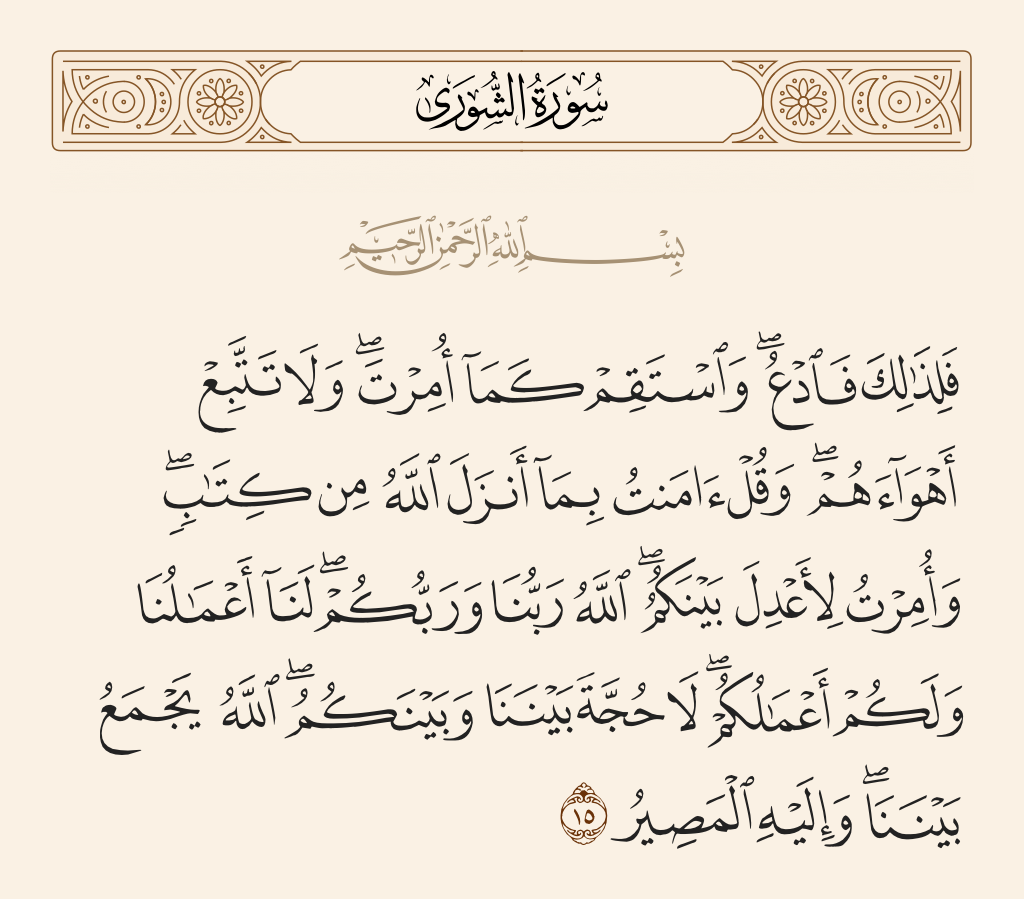 سُورَةُ الشُّورَىٰ
بِسْمِ ٱللَّهِ ٱلرَّحْمَٰنِ ٱلرَّحِيمِ
فَلِذَٰلِكَ فَٱدْعُ ۖ وَٱسْتَقِمْ كَمَآ أُمِرْتَ ۖ وَلَا تَتَّبِعْ
أَهْوَآءَهُمْ ۖ وَقُلْ ءَامَنتُ بِمَآ أَنزَلَ ٱللَّهُ مِن كِتَٰبٍ ۖ
وَأُمِرْتُ لِأَعْدِلَ بَيْنَكُمُ ۖ ٱللَّهُ رَبُّنَا وَرَبُّكُمْ ۖ لَنَآ أَعْمَٰلُنَا
وَلَكُمْ أَعْمَٰلُكُمْ ۖ لَا حُجَّةَ بَيْنَنَا وَبَيْنَكُمُ ۖ ٱللَّهُ يَجْمَعُ
بَيْنَنَا ۖ وَإِلَيْهِ ٱلْمَصِيرُ ١٥